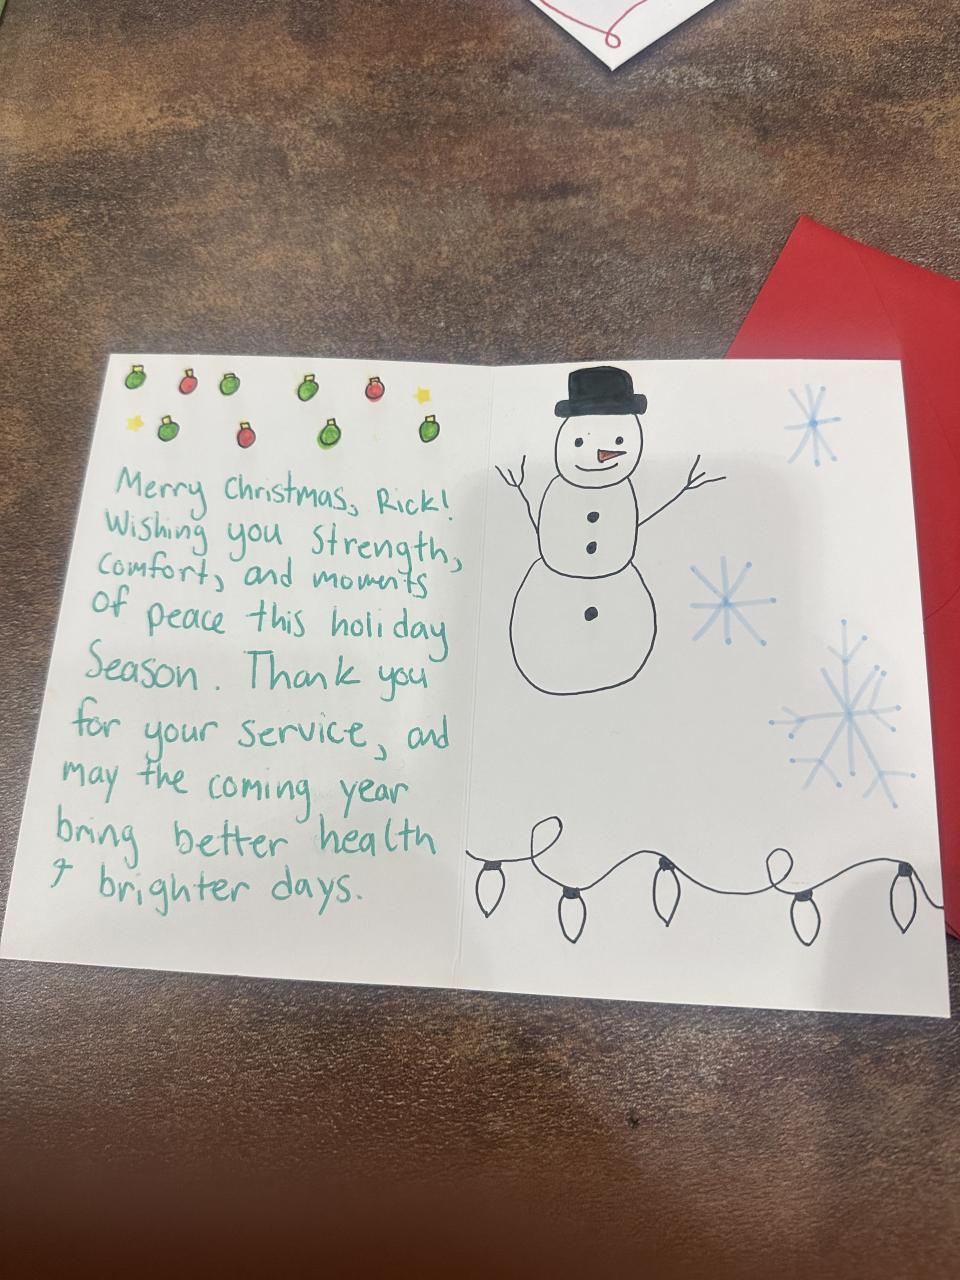 Merry Christmas, Rick!
Wishing you strength,
comfort, and moments
of peace this holiday
Season. Thank you
for your service, and
may the coming year
bring better health
& brighter days.